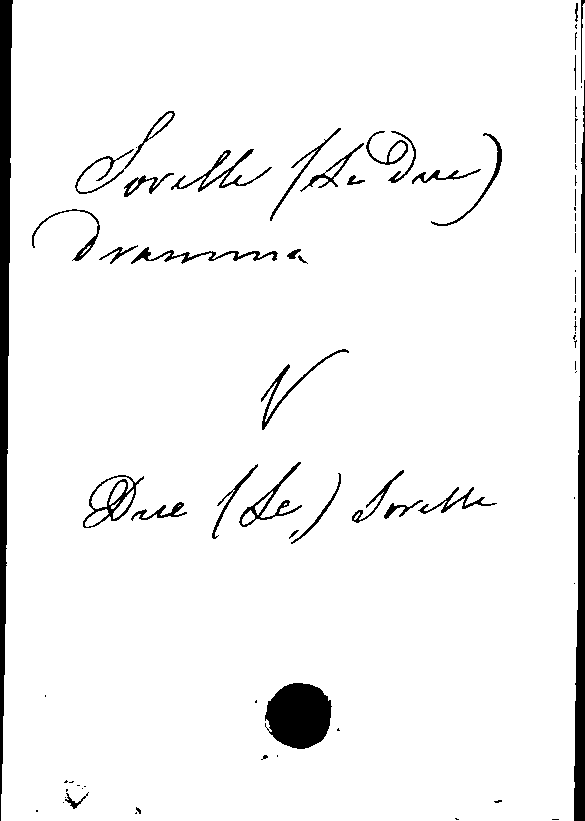 Sorelle (Le Due)
Dramma
V
Due (Le) Sorelle